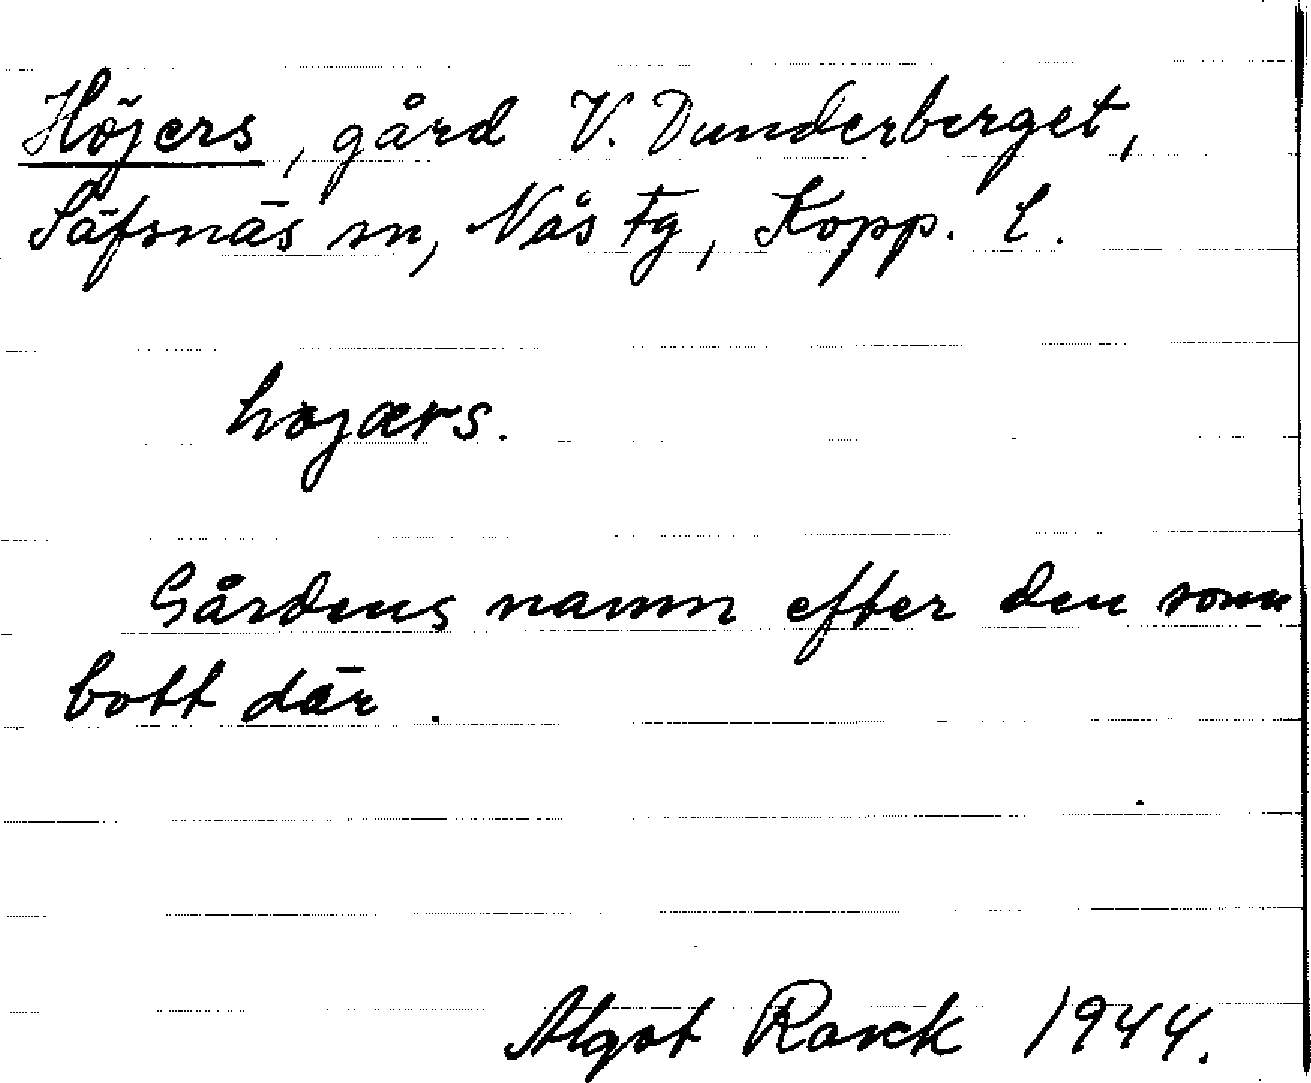 Höjers, gård V. Dunderberget,
Säfsnäs sn, Nås Fg, Kopp. l.
højærs.
Gårdens namn efter den som
bott där.
Algot Rask 1944.